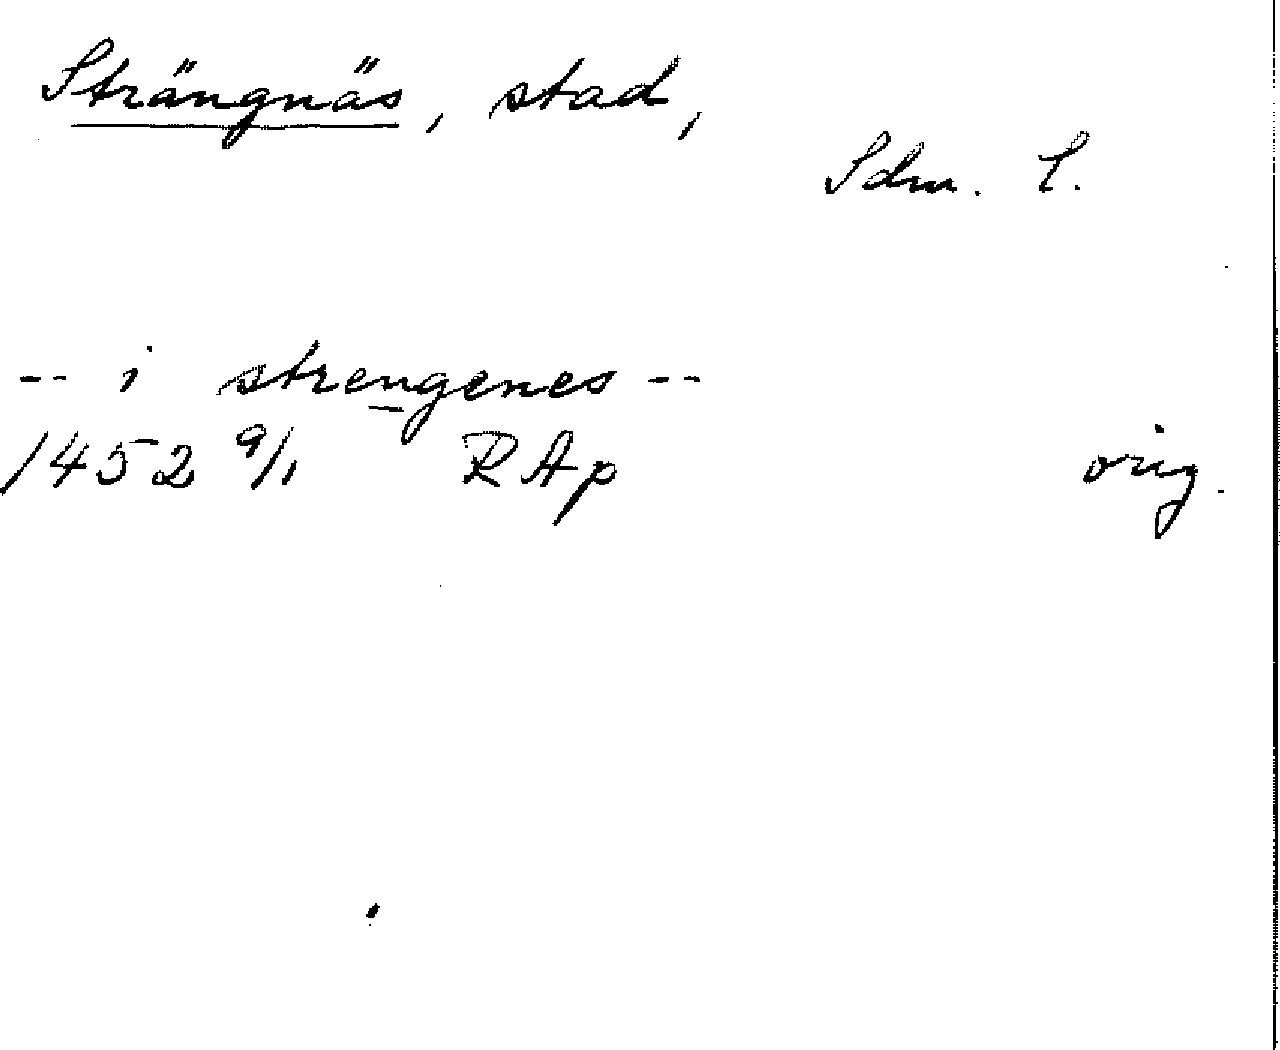 Strängnäs, stad,
Sdm. l.
-- i strengenes --
1452 9/1 RAp orig.